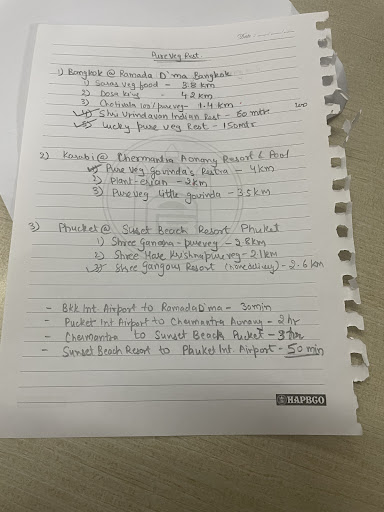 Pure Veg Rest.
1) Bangkok @ Ramada D'ma Bangkok
1) Saras veg food - 3.8 km
2) Dosa king - 4.2 km
3) Chotiwala 100% pure veg - 1.4 km 100
4) Shri Vrindavan Indian Rest - 50 mtr
5) Lucky pure veg Rest - 150 mtr
2) Karabi @ Chermantra Aonang Resort & Pool
1) Pure veg govinda's Restra - 4 km
2) Plant-erian - 2 km
3) Pure veg little govinda - 3.5 km
3) Phucket @ Sunset Beach Resort Phuket
1) Shree Ganesha - pure veg - 2.8 km
2) Shree Hare Krishna pure veg - 2.1 km
3) Shree Gangour Resort - 2.6 km
- BKK Int Airport to Ramada D'ma - 30 min
- Pucket Int Airport to Chermantra Aunang - 2 hr
- Chermantra to Sunset Beach Pucket - 3 hr
- Sunset Beach Resort to Phuket Int. Airport - 50 min
HAPBGO